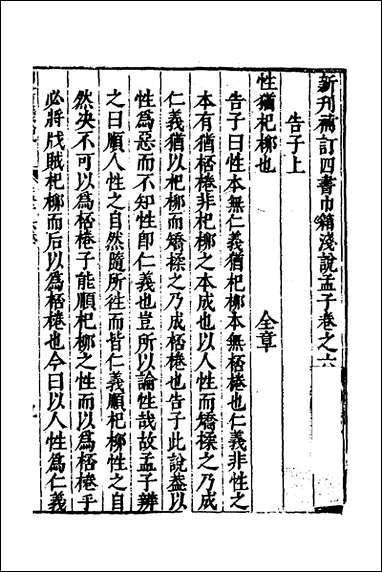 新刊補訂四書巾籍淺說孟子卷之六
告子上
性猶杞柳也　全章
告子曰性本無仁義猶杞柳本無桮棬也仁義非性之
本有猶桮棬非杞柳之本成也以人性而矯揉之乃成
仁義猶以杞柳而矯揉之乃成桮棬也告子此說蓋以
性爲惡而不知性即仁義也豈所以論性哉故孟子辨
之曰順人性之自然隨所往而皆仁義順杞柳性之自
然决不可以爲桮棬子能順杞柳之性而以爲桮棬乎
必將戕賊杞柳而后以爲桮棬也今曰以人性爲仁義